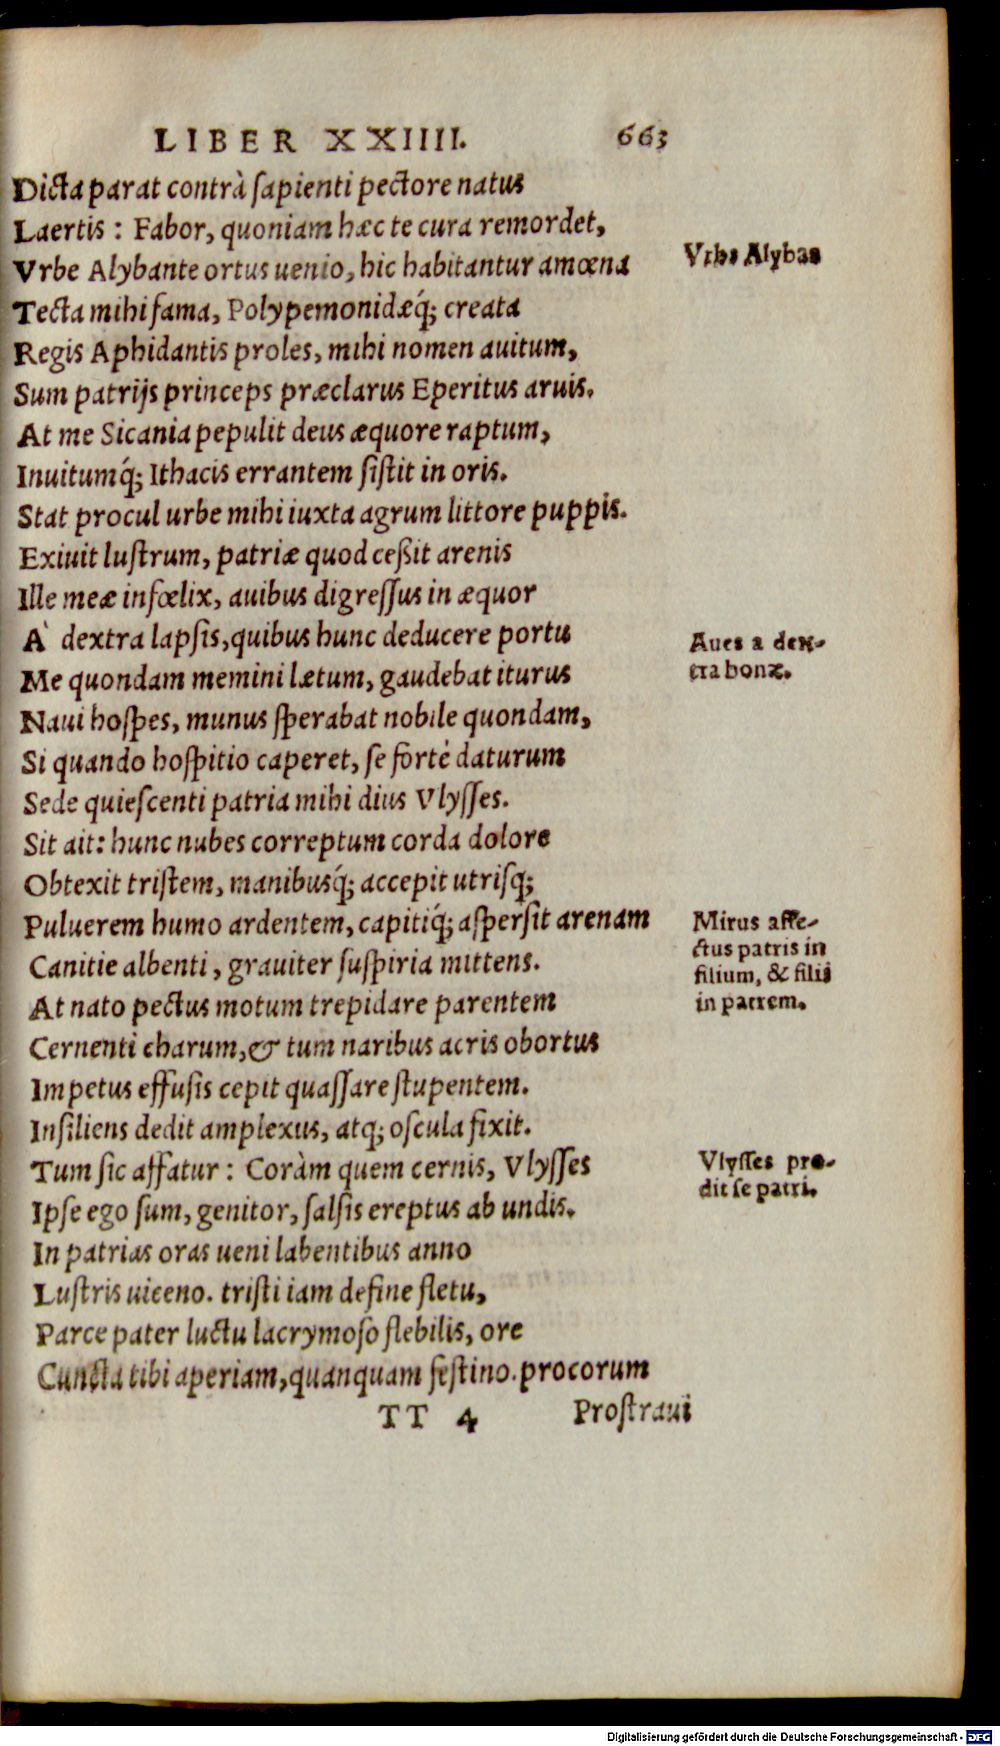 LIBER XXIIII. 663
Dicta parat contrà ſapienti pectore natus
Laertis : Fabor, quoniam hæc te cura remordet,
Vrbe Alybante ortus uenio, hic habitantur amœna
Vrbs Alybas
Tecta mihi fama, Polypemonidæq́; creata
Regis Aphidantis proles, mihi nomen auitum,
Sum patrijs princeps præclarus Eperitus aruis.
At me Sicania pepulit deus æquore raptum,
Inuitumq́; Ithacis errantem ſiſtit in oris.
Stat procul urbe mihi iuxta agrum littore puppis.
Exiuit luſtrum, patriæ quod ceßit arenis
Ille meæ infœlix, auibus digreſſus in æquor
A` dextra lapſis, quibus hunc deducere portu
Aues a dex-
tra bonæ.
Me quondam memini lætum, gaudebat iturus
Naui hoſpes, munus ſperabat nobile quondam,
Si quando hoſpitio caperet, ſe fortè daturum
Sede quieſcenti patria mihi dius Vlyſſes.
Sit ait: hunc nubes correptum corda dolore
Obtexit triſtem, manibusq́; accepit utriſq;
Puluerem humo ardentem, capitiq́; aſperſit arenam
Mirus affe-
ctus patris in
filium, & filij
in patrem.
Canitie albenti, grauiter ſuſpiria mittens.
At nato pectus motum trepidare parentem
Cernenti charum, & tum naribus acris obortus
Impetus effuſis cepit quaſſare ſtupentem.
Inſiliens dedit amplexus, atq; oſcula fixit.
Tum ſic affatur : Coràm quem cernis, Vlyſſes
Vlyſſes pro-
dit ſe patri.
Ipſe ego ſum, genitor, ſalſis ereptus ab undis.
In patrias oras ueni labentibus anno
Luſtris uiceno. triſti iam deſine fletu,
Parce pater luctu lacrymoſo flebilis, ore
Cuncta tibi aperiam, quanquam feſtino. procorum
TT 4 Proſtraui
Digitalisierung gefördert durch die Deutsche Forschungsgemeinschaft - DFG